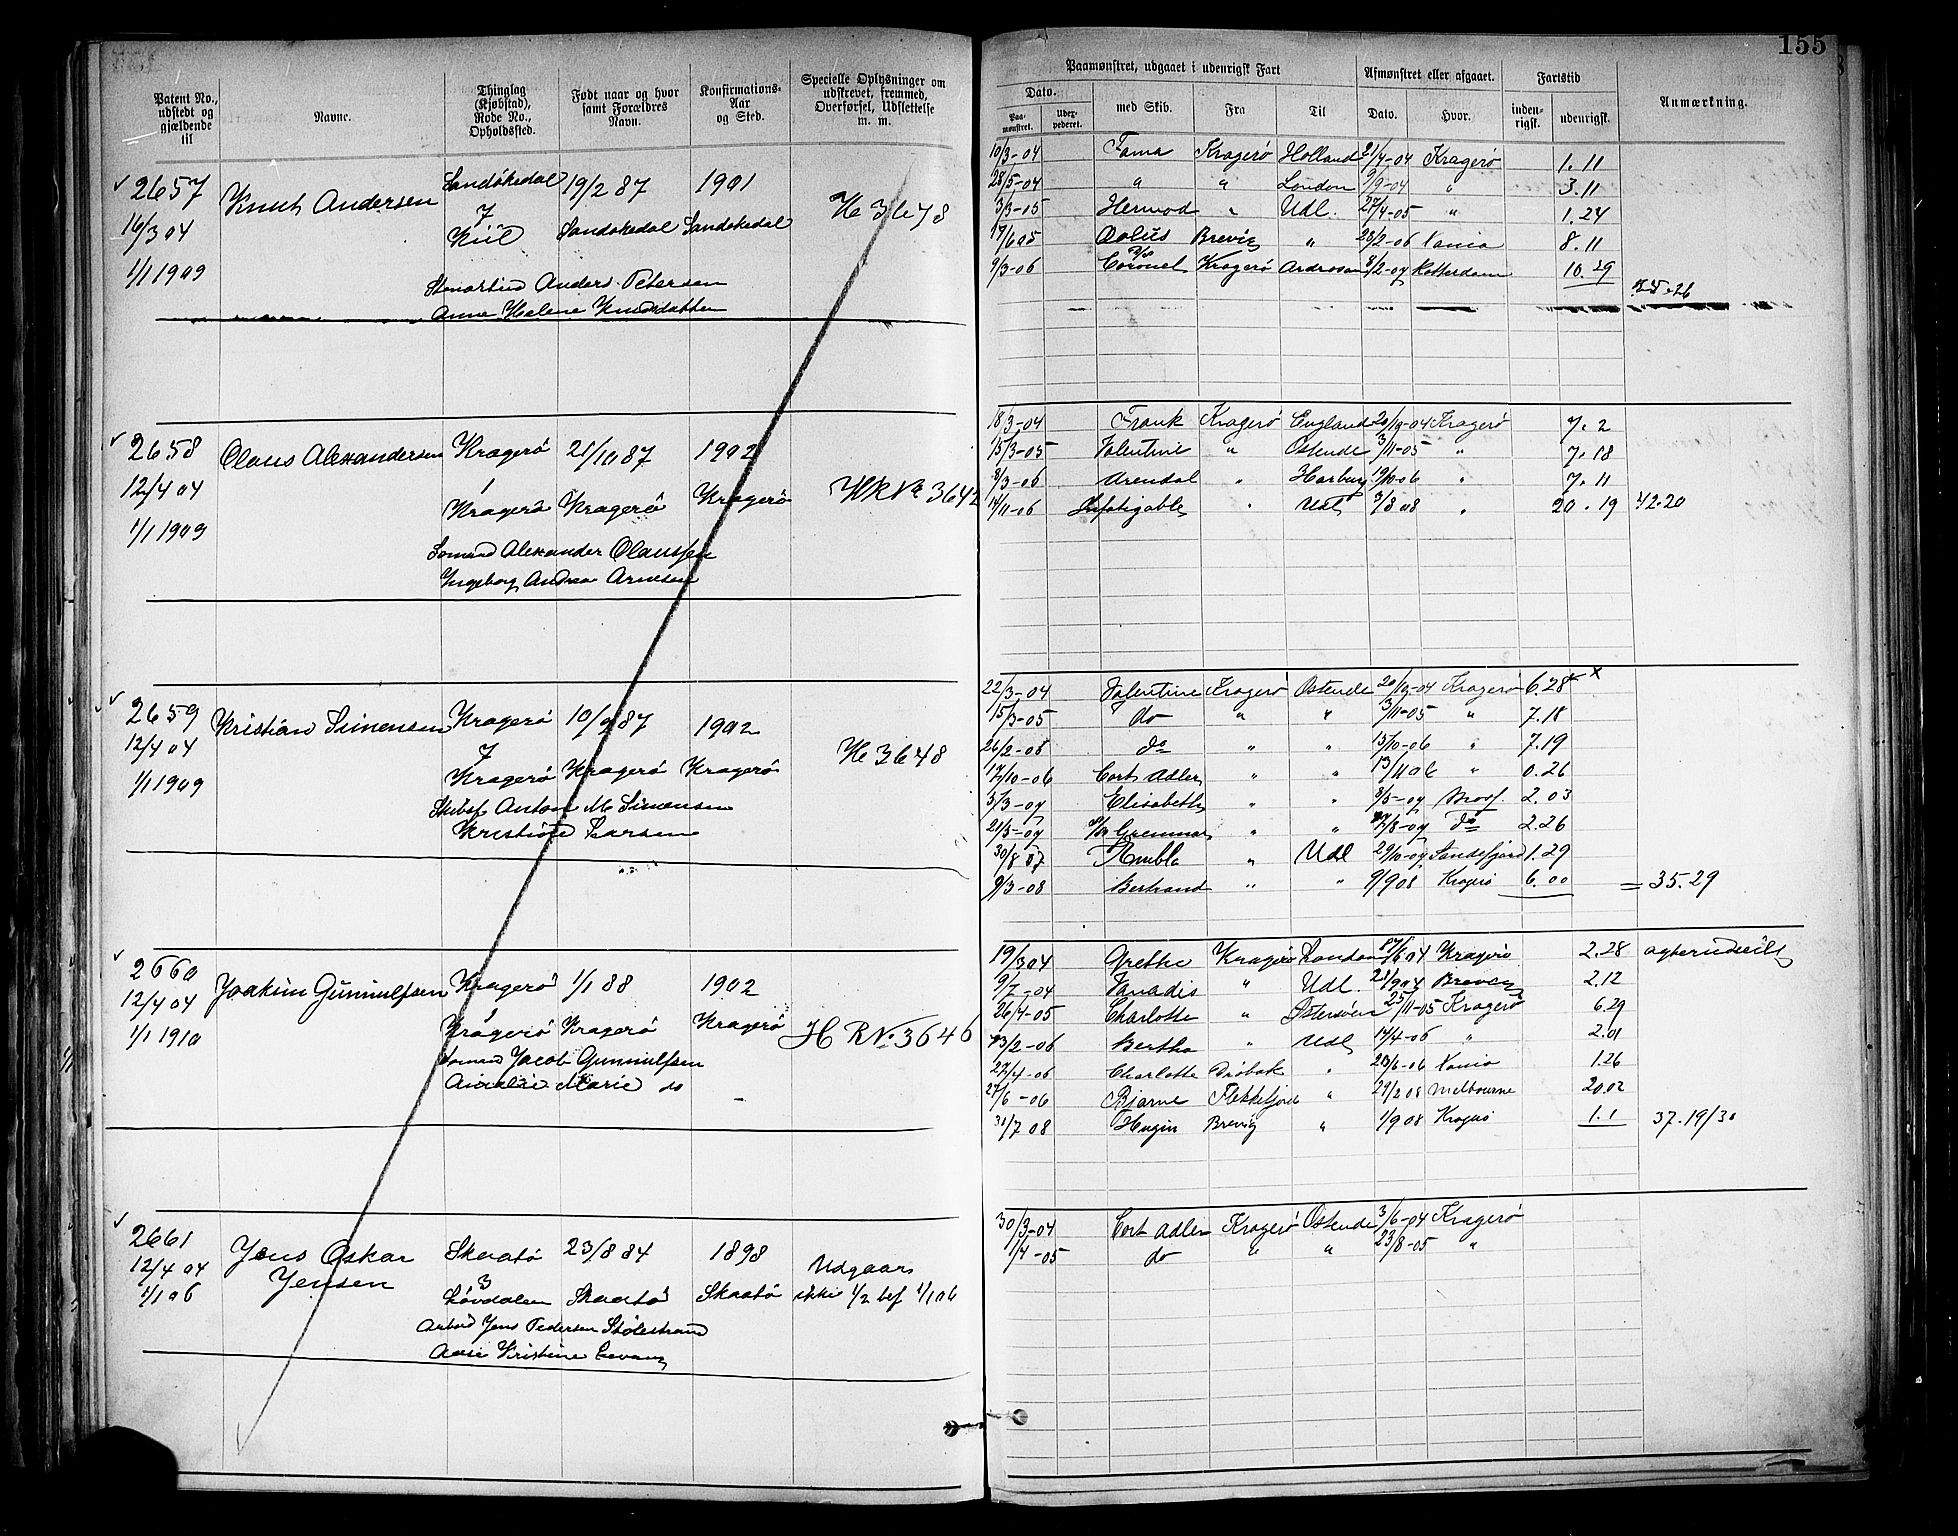 155
Patent No., udstedt og gjældende til
Navne.
Thinglag (Kjøbstad), Rode No., Opholdssted.
Født naar og hvor samt Forældres Navn.
Konfirmations-Aar og Sted.
Specielle Oplysninger om udskrevet, fremmed, Overførsel, Udslettelse m. m.
Paamønstret, udgaaet i udenrigsk Fart
Afmønstret eller afgaaet.
Fartstid
Anmærkning.
Dato.
Paa-mønstret.
med Skib.
Fra
Til
Dato.
Hvor.
inden-rigsk.
udenrigsk.
2657 Knut Andersen Sandøkedal 19/2 87 1901
16/3 04 7 Kiil Sandøkedal Sandøkedal H 3678
1/1 1909
Anders Petersen
Anne Helene Knudsdatter
10/3-04 Fama Kragerø Holland 21/4-04 Kragerø 1.11
28/5-04 " " London 9/9-04 " 3.11
3/3-05 Hermod " Udl. 27/4-05 " 1.24
17/6 05 Aolus Brevig " 28/2-06 Xania 8.11
9/3-06 Coronel Kragerø Ardrosan 8/2-07 Rotterdam 10.29
2658 Olaus Alexandersen Kragerø 21/10 87 1902
12/4 04 1 Kragerø Kragerø Kragerø HR No 3642
1/1 1909
Alexander Olaussen
Ingeborg Andrea Arnesen
18/3-04 Frank Kragerø England 20/10-04 Kragerø 7.2
15/3-05 Valentine " Ostende 3/11-05 " 7.18
8/3-06 Arendal " Harburg 19/10-06 " 7.11
14/11-06 Infatigable " Udl 3/8 08 " 20.19 42.20
2659 Kristian Simensen Kragerø 10/9 87 1902
12/4 04 7 Kragerø Kragerø Kragerø H 3648
1/1 1909
Skibsf Anton M Simensen
Larsen
22/3-04 Valentine Kragerø Ostende 20/10-04 Kragerø 6.28 x
15/3-05 do " " 3/11-05 " 7.18
26/2-06 do " " 15/10-06 " 7.19
17/10-06 Cort Adler " " 13/11 06 " 0.26
3/3-07 Elisabeth " " 8/5-07 Moss. 2.03
21/5-07 " " 17/8-07 do 2.26
30/8 07 " Udl 29/10-07 Sandefjord 1.29
9/3-08 Bertrand " " 9/9 08 Kragerø 6.00 = 35.29
2660 Joakim Gunnulfsen Kragerø 1/1 88 1902
12/4 04 1 Kragerø Kragerø Kragerø H R No. 3646
1/1 1910
Jacob Gunnulfsen
Marie do
19/3 04 Grethe Kragerø London 17/6 04 Kragerø 2.28
9/7-04 Vanadis " Udl. 21/9 04 Brevig 2.12
26/4-05 Charlotte " Østersøen 25/11-05 Kragerø 6.29
13/2-06 Bertha " Udl 14/4-06 " 2.01
22/4-06 Charlotte Drøbak " 20/6-06 Xania 1.26
27/6-06 Bjarne Flekkefjord " 29/2 08 Melbourne 20.02
31/7 08 Hugin Brevig " 1/9 08 Kragerø 1.1 37.19/30
2661 Jens Oskar Jensen Skaatø 23/8 84 1898
12/4 04 3 Løvdalen Skaatø Skaatø Udgaar ikke 1/2 bef 1/1 06
1/1 06
Arbeid Jens Pedersen Stølestrand
Kristine
30/3-04 Cort Adler Kragerø Ostende 3/6-04 Kragerø
1/4-05 do " " 23/8-05 "